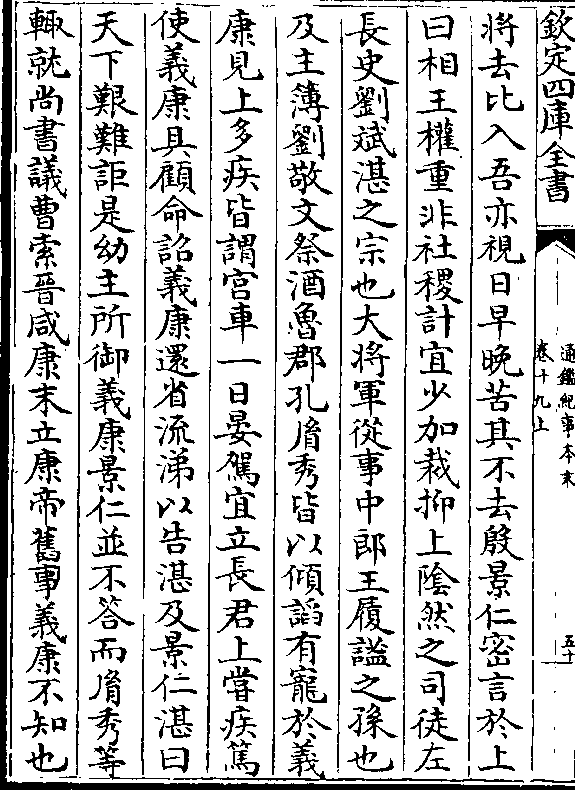 欽定四庫全書
通鑑紀事本末
卷十九上
五十
將去比入吾亦視日早晚苦其不去殷景仁密言於上
曰相王權重非社稷計宜少加裁抑上陰然之司徒左
長史劉斌湛之宗也大將軍從事中郎王履謐之孫也
及主簿劉敬文祭酒魯郡孔胤秀皆以傾謟有寵於義
康見上多疾皆謂宫車一日晏駕宜立長君上嘗疾篤
使義康具顧命詔義康還省流涕以告湛及景仁湛曰
天下艱難詎是幼主所御義康景仁並不答而胤秀等
輙就尚書議曹索晉咸康末立康帝舊事義康不知也